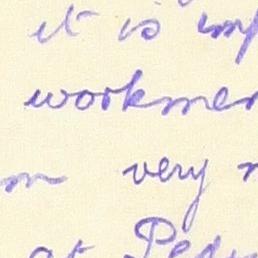 it is imp
workmen
m very n
at Pedr